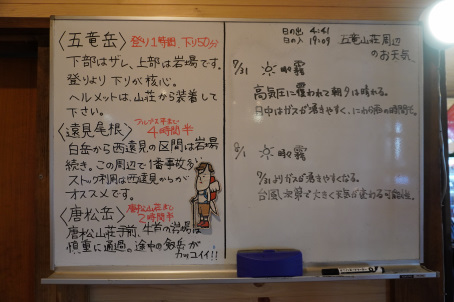 〈五竜岳〉 登り1時間、下り50分
下部はザレ、上部は岩場です。
登りより下りが核心。
ヘルメットは、山荘から装着して
下さい。
〈遠見尾根〉 アルプス平まで
4時間半
白岳から西遠見の区間は岩場
続き。この周辺で1番事故多い
ストック利用は西遠見からが
オススメです。
〈唐松岳〉 唐松山荘まで
2時間半
唐松山荘手前、牛首の岩場は
慎重に通過。途中の
カッコイイ!!
日の出 4:41
日の入 19:09
五竜山荘周辺
のお天気
7/31 時々霧
高気圧に覆われて朝夕は晴れる。
日中はガスが湧きやすく、にわか雨の時間も。
8/1 時々霧
7/31よりガスが湧きやすくなる。
台風次第で大きく天気が変わる可能性。